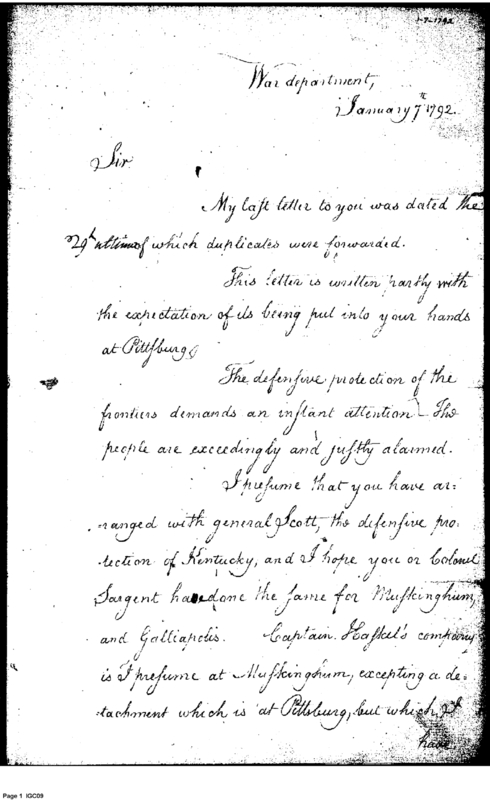 1-7-1792
War department,
January 7th 1792.
Sir
My last letter to you was dated the
29th ultimo of which duplicates were forwarded.
This letter is written partly with
the expectation of its being put into your hands
at Pittsburg.
The defensive protection of the
frontiers demands an instant attention - The
people are exceedingly and justly alarmed.
I presume that you have ar=
=ranged with general Scott, the defensive pro=
=tection of Kentucky, and I hope you or Colonel
Sargent have done the same for Muskinghum,
and Galliapolis. Captain Haskel's company
is I presume at Muskinghum, excepting a de=
=tachment which is at Pittsburg, but which, I
have
Page 1 IGC09